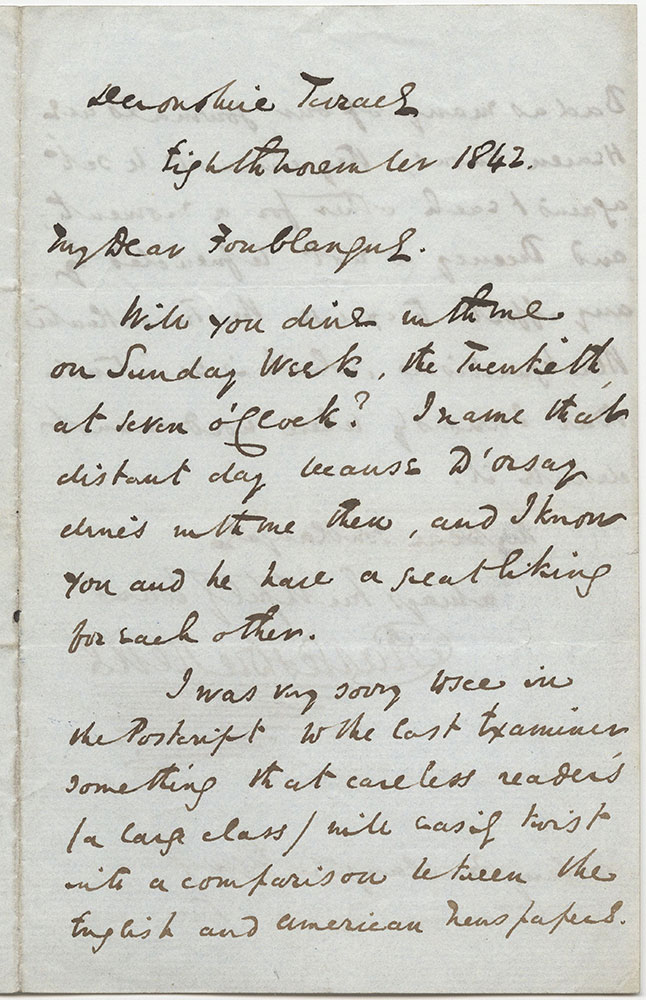 Devonshire Terrace
Eighth November 1842.
My Dear Fonblanque.
Will you dine with me
on Sunday Week, the Twentieth,
at seven o'Clock? I name that
distant day because D'orsay
dines with me then, and I know
you and he have a great liking
for each other.
I was very sorry to see in
the Postcript to the last Examiner
something that careless readers
/a large class/ will easily twist
into a comparison between the
English and American Newspapers.